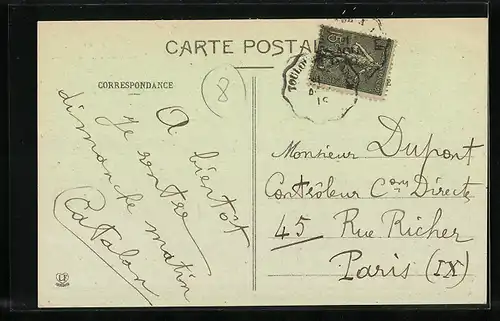 CARTE POSTALE
CORRESPONDANCE
8
A bientôt
Je rentre
dimanche matin
Catalan
TOULON
15
Monsieur Dupont
Contrôleur Con Directes
45 Rue Richer
Paris (IX)
LF